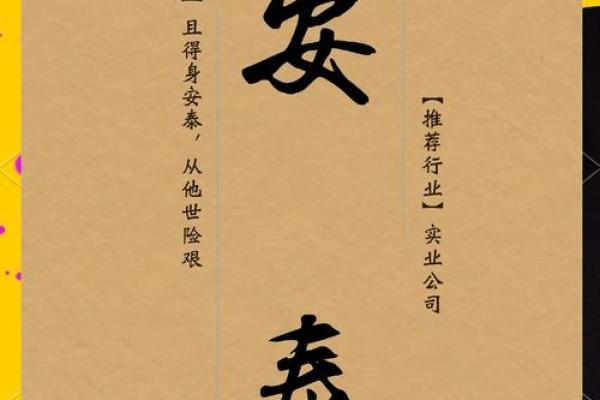 【推荐行业】实业公司
安泰
且得身安泰，从他世险艰